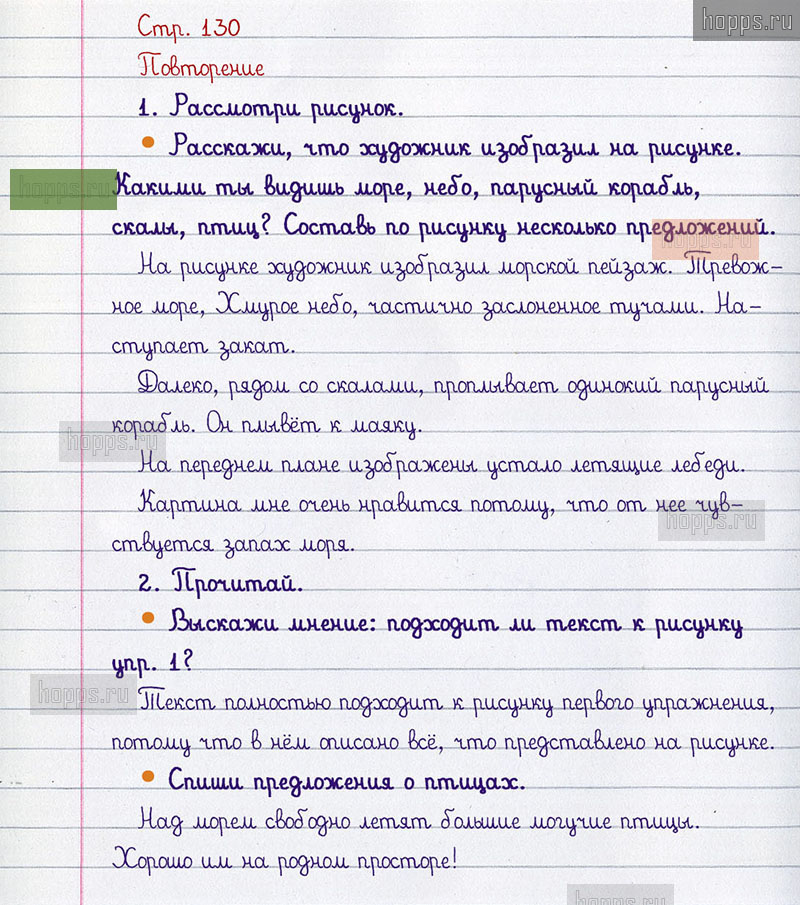 hopps.ru
Стр. 130
Повторение
1. Рассмотри рисунок.
• Расскажи, что художник изобразил на рисунке.
hopps.ru
Какими ты видишь море, небо, парусный корабль,
скалы, птиц? Составь по рисунку несколько предложений.
hopps.ru
На рисунке художник изобразил морской пейзаж. Тревож-
ное море, Хмурое небо, частично заслоненное тучами. На-
ступает закат.
Далеко, рядом со скалами, проплывает одинокий парусный
корабль. Он плывёт к маяку.
hopps.ru
На переднем плане изображены устало летящие лебеди.
Картина мне очень нравится потому, что от нее чув-
hopps.ru
ствуется запах моря.
2. Прочитай.
• Выскажи мнение: подходит ли текст к рисунку
упр. 1?
hopps.ru
Текст полностью подходит к рисунку первого упражнения,
потому что в нём описано всё, что представлено на рисунке.
• Спиши предложения о птицах.
Над морем свободно летят большие могучие птицы.
Хорошо им на родном просторе!
hopps.ru